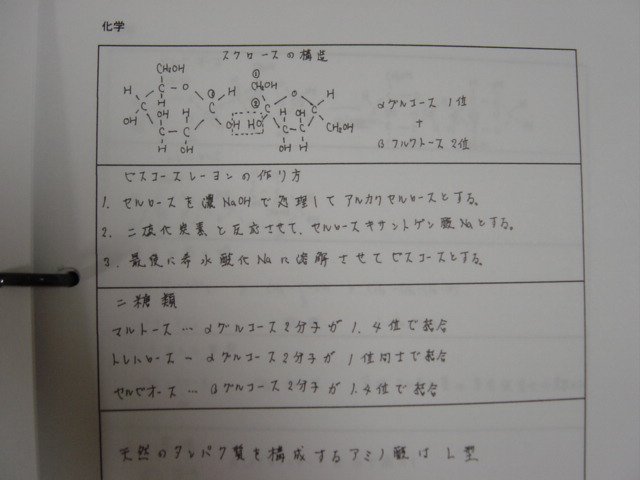 化学
スクロースの構造
CH2OH
CH2OH
H
C
O
H
H
C
H
OH
C
OH
C
C
H
OH
OH HO
C
O
H
C
CH2OH
C
C
OH
OH
H
H
① 
②
①
αグルコース 1位
+
βフルクトース 2位
ビスコースレーヨンの作り方
1. セルロースを濃NaOHで処理してアルカリセルロースとする。
2. 二硫化炭素と反応させて、セルロースキサントゲン酸Naとする。
3. 最後に希水酸化Naに溶解させてビスコースとする。
二糖類
マルトース … αグルコース2分子が1,4位で結合
トレハロース … αグルコース2分子が1位同士で結合
セルビオース … βグルコース2分子が1,4位で結合
天然のタンパク質を構成するアミノ酸はL型